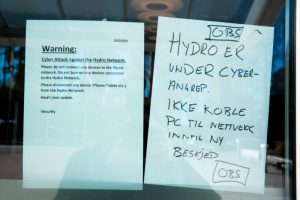 Warning:
Cyber Attack Against the Hydro Network.
Please do not connect any devices to the Hydro
network. Do not turn on any devices connected
to the Hydro Network.
Please disconnect any device (Phone/Tablet etc.)
from the Hydro Network.
Await new update.
-Security
OBS
HYDRO ER
UNDER CYBER-
ANGREP.
IKKE KOBLE
PC TIL NETTVERK
INNTIL NY
BESKJED
OBS